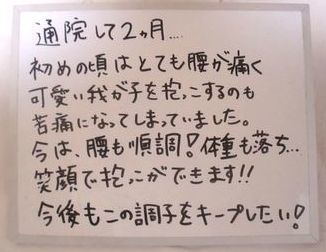 通院して2ヶ月....
初めの頃はとても腰が痛く
可愛い我が子を抱っこするのも
苦痛になってしまっていました。
今は、腰も順調!体重も落ち...
笑顔で抱っこができます!!
今後もこの調子をキープしたい!